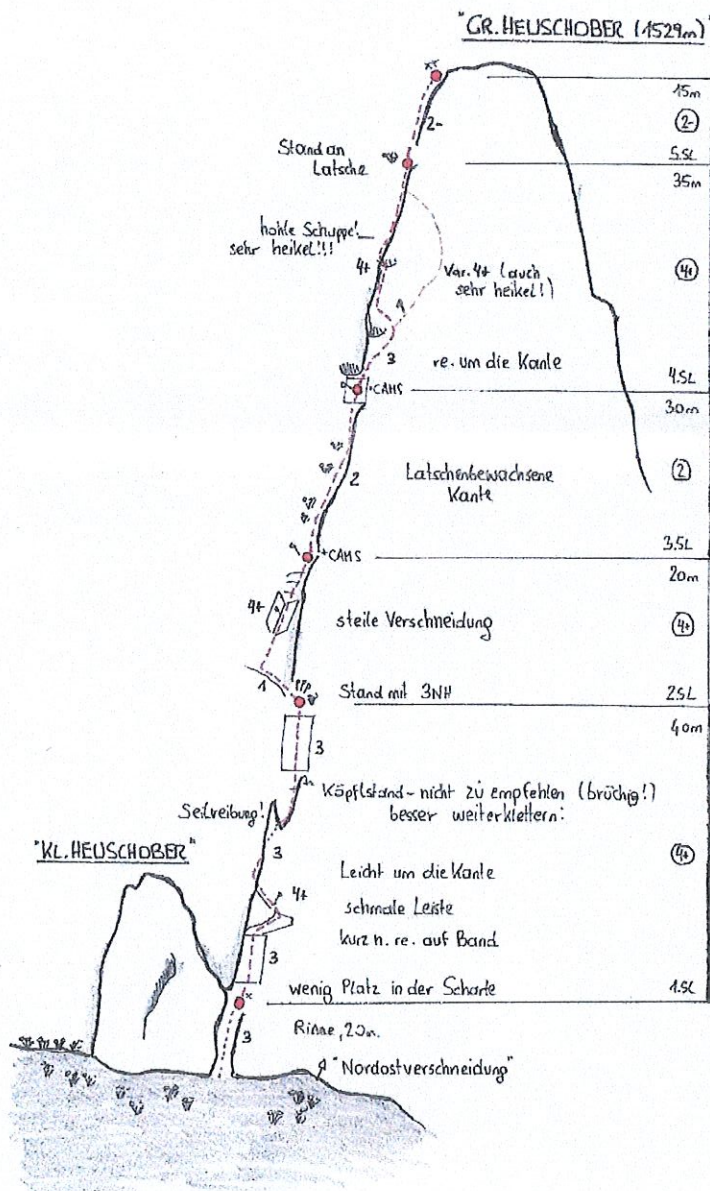 "GR. HEUSCHOBER (1529m)"
15m
2-
2-
Stand an
Latsche
5.SL
35m
hohle Schuppe!
sehr heikel!!!
4+
Var. 4+ (auch
sehr heikel!)
4+
3
re. um die Kante
4.SL
+CAMS
30m
2
Latschenbewachsene
Kante
2
3.SL
+CAMS
20m
4+
steile Verschneidung
4+
1
Stand mit 3NH
2SL
40m
3
Köpflstand - nicht zu empfehlen (brüchig!)
besser weiterklettern:
Seilreibung!
"KL. HEUSCHOBER"
3
4+
Leicht um die Kante
4+
schmale Leiste
kurz n. re. auf Band
3
wenig Platz in der Scharte
1.SL
Rinne, 20m.
3
"Nordostverschneidung"